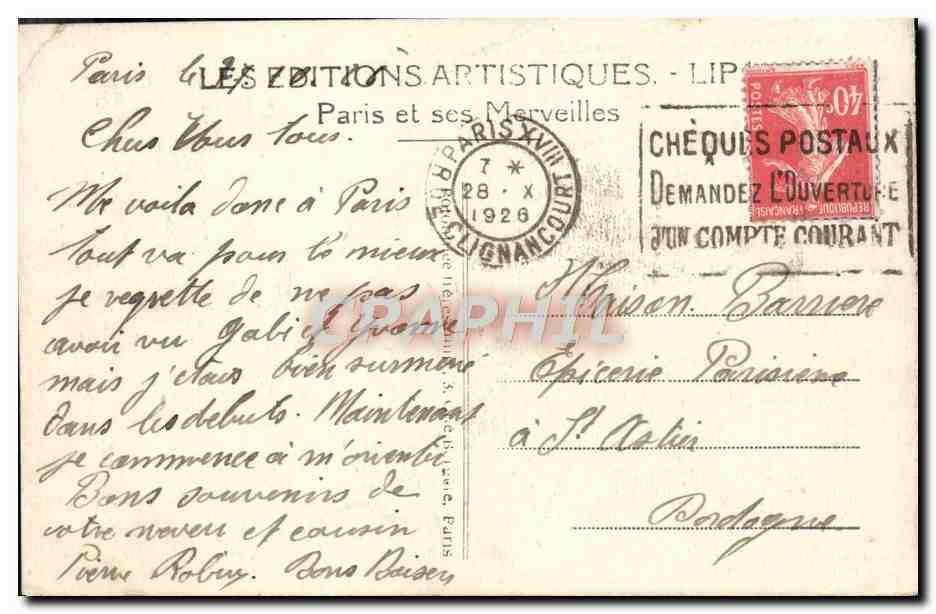 LES EDITIONS ARTISTIQUES. - LIP
Paris et ses Merveilles
Paris le
Chers Vous tous.
Me voila donc à Paris
tout va pour le mieux
je regrette de ne pas
avoir vu Gabi et Yvonne
mais j'etais bien surmené
dans les debuts. Maintenant
je commence à m'orienter
Bons souvenirs de
votre neveu et cousin
Pierre Bons Baisers
PARIS XVIII
7 *
28 - X
1926
R. CLIGNANCOURT
CHÈQUES POSTAUX
DEMANDEZ L'OUVERTURE
D'UN COMPTE COURANT
40c
POSTES
REPUBLIQUE FRANÇAISE
Maison Barriere
Epicerie Parisienne
à St Astier
Dordogne
CPAPHIL
Paris